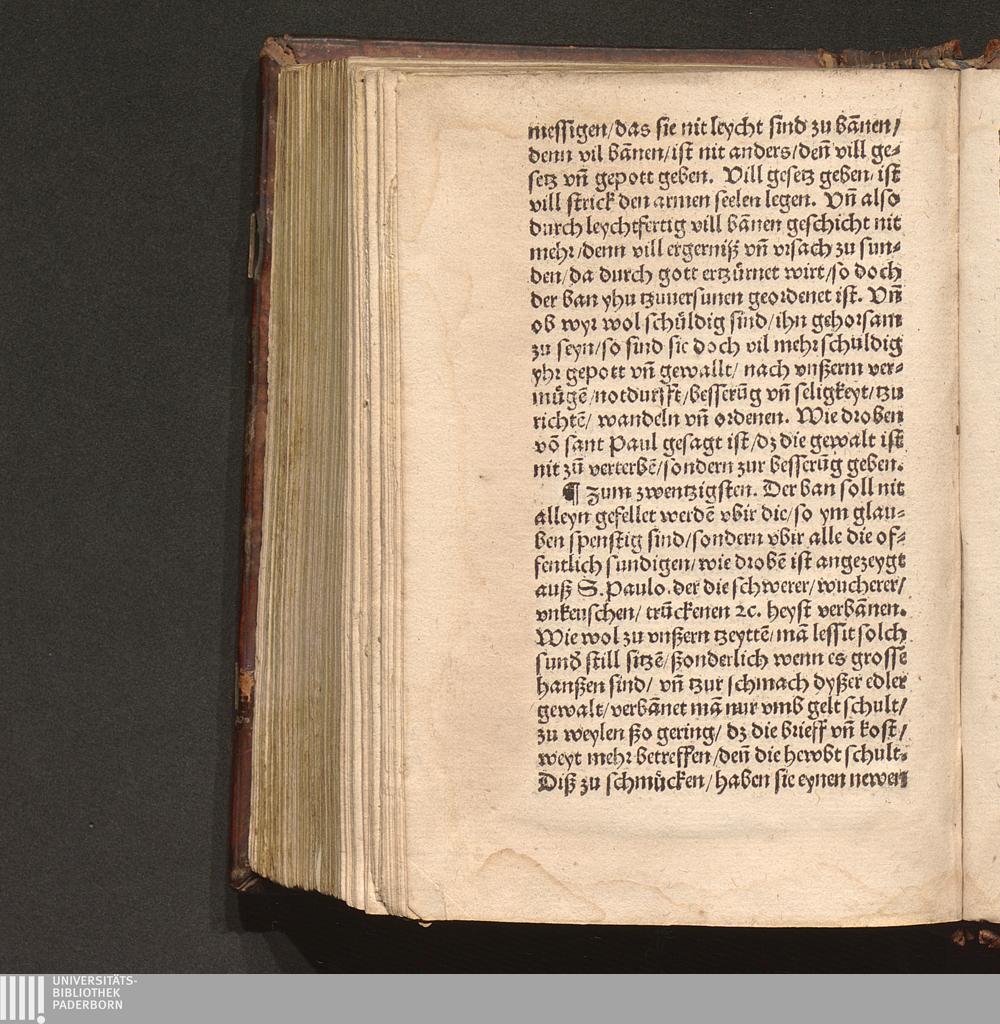 messigen/das sie nit leycht sind zu bānen/
denn vil bānen/ist nit anders/deñ vill ge⸗
setz vñ gepott geben. Vill gesetz geben/ist
vill strick den armen seelen legen. Vñ also
durch leychtfertig vill bānen geschicht nit
mehr/denn vill ergerniß vñ vrsach zu sun⸗
den/da durch gott ertzürnet wirt/so doch
der ban yhn tzuuersunen geordenet ist. Vñ
ob wyr wol schüldig sind/ihn gehorsam
zu seyn/so sind sie doch vil mehr schuldig
yhr gepott vñ gewallt/nach vnßerm ver⸗
mügē/notdurfft/besserūg vñ seligkeyt/tzu
richtē/wandeln vñ ordenen. Wie droben
vō sant Paul gesagt ist/dz die gewalt ist
nit zū verterbē/sondern zur besserūg geben.
¶ Zum zwentzigsten. Der ban soll nit
alleyn gefellet werdē vbir die/so ym glau⸗
ben spenstig sind/sondern vbir alle die of⸗
fentlich sundigen/wie drobē ist angezeygt
auß S. Paulo. der die schwerer/wucherer/
vnkeuschen/trūckenen ⁊c. heyst verbānen.
Wie wol zu vnßern tzeyttē/mā lessit solch
sund still sitzē/ßonderlich wenn es grosse
hanßen sind/vñ tzur schmach dyßer edler
gewalt/verbānet mā nur vmb gelt schult/
zu weylen ßo gering/dz die brieff vñ kost/
weyt mehr betreffen/deñ die hewbt schult.
Diß zu schmücken/haben sie eynen newen
UNIVERSITÄTS-
BIBLIOTHEK
PADERBORN